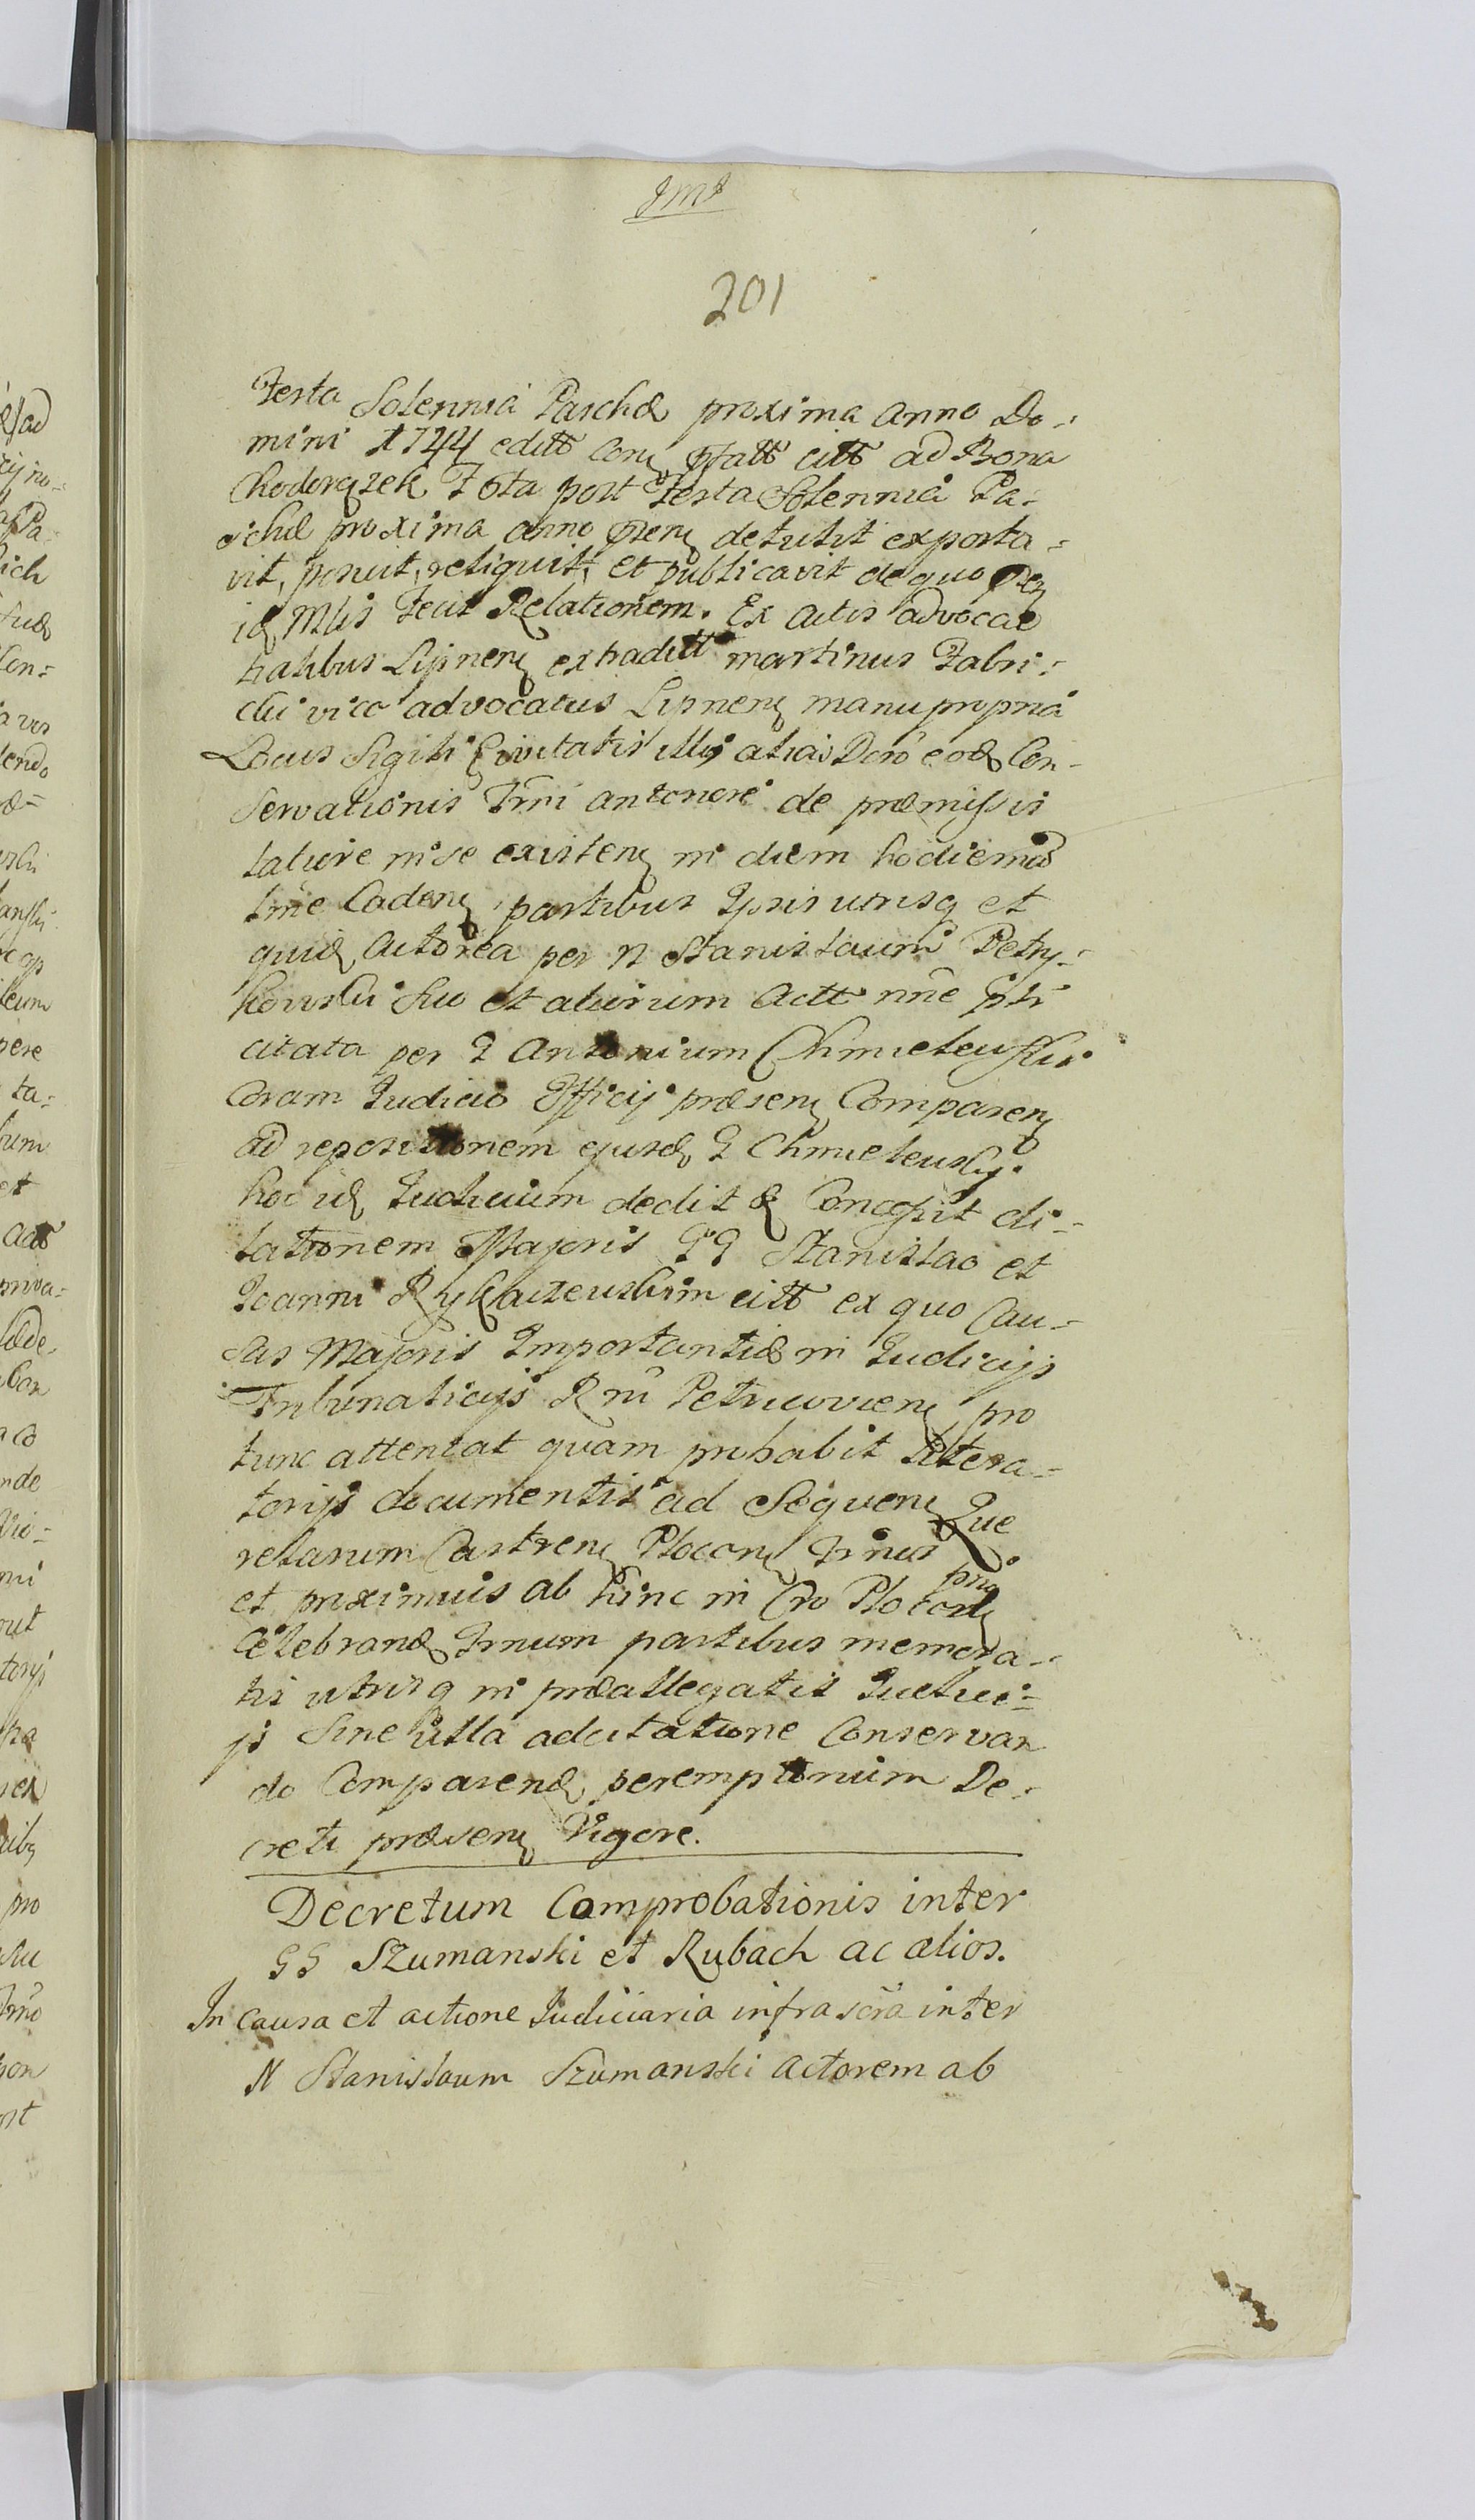 201
Festa Solennia Paschæ proxima Anno Do=
mini 1744 editt Cong pfatt citt ad Bona
Chodorążek Fta post Festa Solennia Pa=
schæ proxima anno detulit exporta=
vit, posuit, reliquit, et publicavit de quo
idq Mlis Fecit Relationem. Ex Actis advocae
tialibus Lipneng extraditt martinus Fabri=
cki vice advocatus Lipneng manu propria
Locus Sigilli Civitatis illig alias Dcro eodq Con=
Servationis Trni de præmissis
tature in se existeng in diem hodiernã
trne Cadeng partibus Ipsis utrisq et
quidq Actorea per N Stanislaum Petry=
kowski Suo et aliorum Actt nñe
citata per G Antonium Chmielewski
Coram Judicio Officij præseng Compareng
ad repositionem ejusdq G Chmielewskij
hoc idq Judicium dedit & Concessit di=
lationem Majoris GG Stanislao et
Joanni Rykaczewskim citt ex quo Cau=
sas Majoris Importantiæ in Judicijs
Tribunalicijs Rni Petricovieng pro
tunc attentat quam probabit Litera=
torijs documentis ad Sequeng Que
relarum Castreng Ploceng Trnus
et proximus ab hinc in Cro Ploceng
Celebrandq Trnum partibus memora=
tis utrisq in præallegatis Judici=
js Sine ulla adcitatione Conservan
do Comparendq peremptorium De=
creti præseng Vigore.
Decretum Comprobationis inter
GG Szumanski et Rubach ac alios.
In causa et actione Judiciaria infra scra inter
N Stanislaum Szumanski Actorem ab